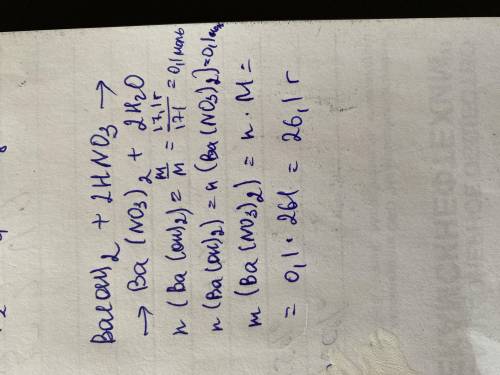 Ba(OH)2 + 2HNO3 →
→ Ba(NO3)2 + 2H2O
n(Ba(OH)2) = m/M = 17,1г/171 = 0,1моль
n(Ba(OH)2) = n(Ba(NO3)2) = 0,1моль
m(Ba(NO3)2) = n · M =
= 0,1 · 261 = 26,1г